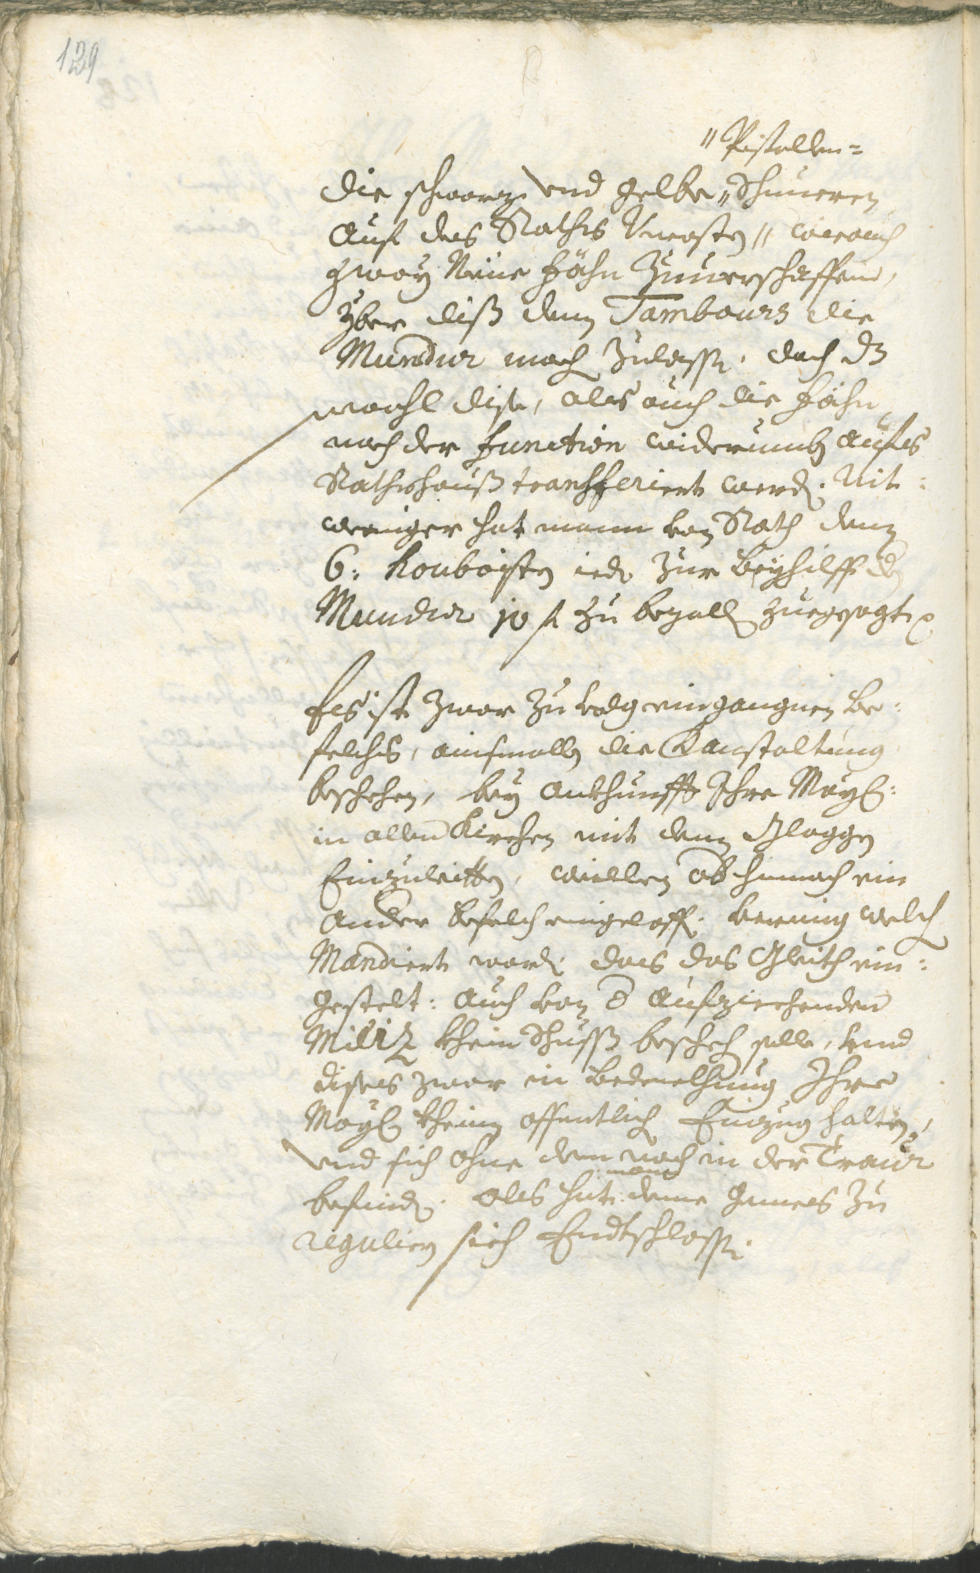 129
" Pistollen=
die schwarz Vnd gelbe " Schnieren
auf des Raths Vncosten " wie auch
zway Neüe Fähn Zuuerschaffen,
Yber diß denen Tambours die
Mundur mach Zulassen. doch dz
wohl dise, als auch die Fähn,
nach der Function widerumb aufs
Rathshauß transferiert werden. Nit:
weniger hat mann von Rath denen
6: Houboisten iedem Zur Beyhilff der
Mundur 10 f Zu bezallen Zuegesagt
Es ist zwar Zu volg eingangnen Be:
felchs, ainsmalls die Veranstaltung
beschehen, bey ankhunfft Ihre Mayestät:
in allen Kirchen mit denen Gloggen
Einzuleitten, weillen ab hernach ein
ander befelch eingeloffen. Krafft welch
Mandiert worden das das Gleith ein:
gestelt: auch von der aufziechenden
Miliz khein Schuss beschehen solle, vmb
dises zwar in bedenckhung Ihre
Mayestät kheinen offentlich Einzug halten,
vnd sich ohne dem noch in der Traur
befinden. als hat mann deme gemes Zu
regulieren sich Endtschlossen.